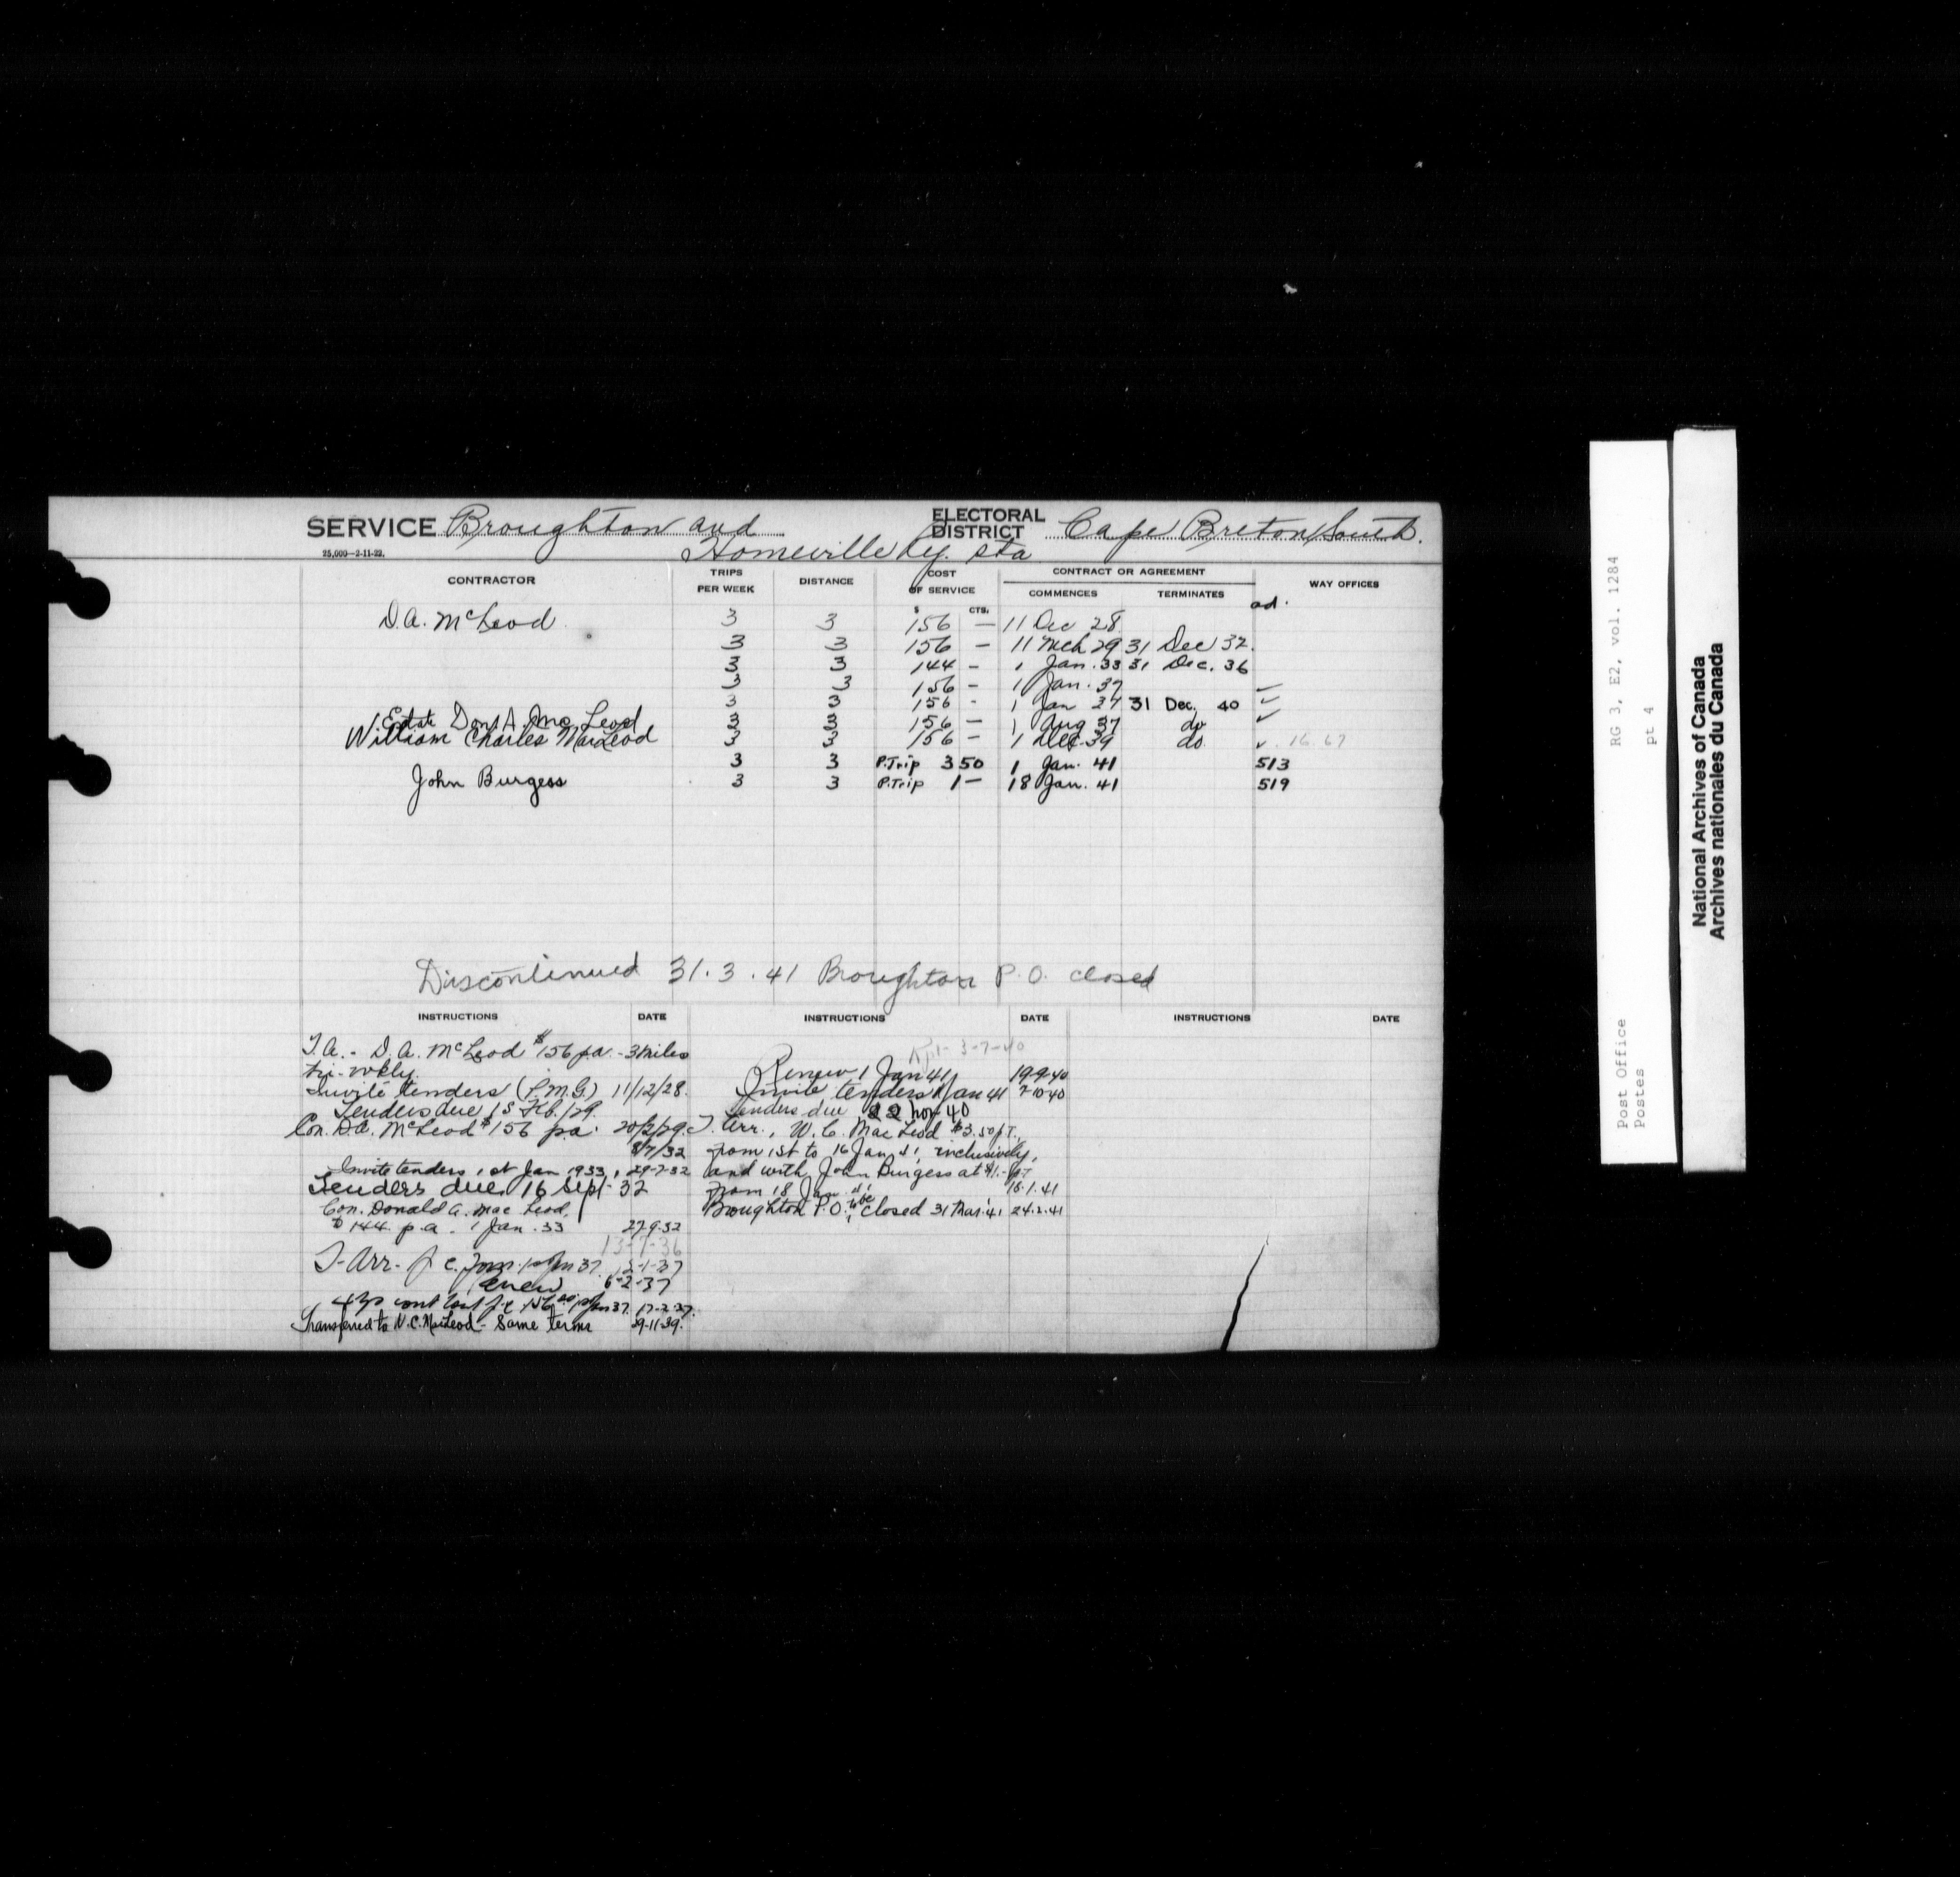 SERVICE Broughton and
Homeville Ry. Sta
ELECTORAL DISTRICT Cape Breton South.
25,000—2-11-22.
CONTRACTOR TRIPS PER WEEK DISTANCE COST OF SERVICE CONTRACT OR AGREEMENT WAY OFFICES
$ CTS. COMMENCES TERMINATES
ad.
D.A. McLeod 3 3 156 — 11 Dec 28
3 3 156 — 11 Mch 29 31 Dec 32.
3 3 144 — 1 Jan. 33 31 Dec. 36
3 3 156 — 1 Jan. 37 ✓
3 3 156 - 1 Jan 37 31 Dec. 40 ✓
Estate Don A. MacLeod 3 3 156 — 1 Aug 37 do ✓
William Charles MacLeod 3 3 156 — 1 Dec 39 do. ✓ 16.67
3 3 P.Trip 3 50 1 Jan. 41 513
John Burgess 3 3 P.Trip 1 — 18 Jan. 41 519
Discontinued 31.3.41 Broughton P.O. closed
INSTRUCTIONS DATE
T.A. - D.A. McLeod $156 p.a. - 3 miles
tri-wkly.
Invite tenders (P.M.G.) 11/12/28.
Tenders due 15 Feb./29.
Con. D.A. McLeod $156 p.a. 20/2/29.
8/7/32
Invite tenders 1st Jan 1933, 29-7-32
Tenders due 16 Sept. 32
Con. Donald A. MacLeod,
$144 p.a. 1 Jan. 33 27.9.32
13-7-36
T-Arr. f.c. from 1 Jan 37. 12-1-37
Renew 6-2-37
156 1 Jan 37. 17-2-37.
Transferred to W.C. MacLeod - Same terms 29-11-39.
INSTRUCTIONS DATE
Rpt 3-7-40
Renew 1 Jan 41 19-9-40
Invite tenders 1 Jan 41 7-10-40
Tenders due 22 Nov 40
T. Arr., W.C. MacLeod $3.50 p.T.,
from 1st to 16 Jan 41, inclusively,
and with John Burgess at $1.- p.T
from 18 Jan. 41 18.1.41
Broughton P.O. to be closed 31 Mar. 41 24.2.41
INSTRUCTIONS DATE
RG 3, E2, vol. 1284
pt 4
Post Office
Postes
National Archives of Canada
Archives nationales du Canada